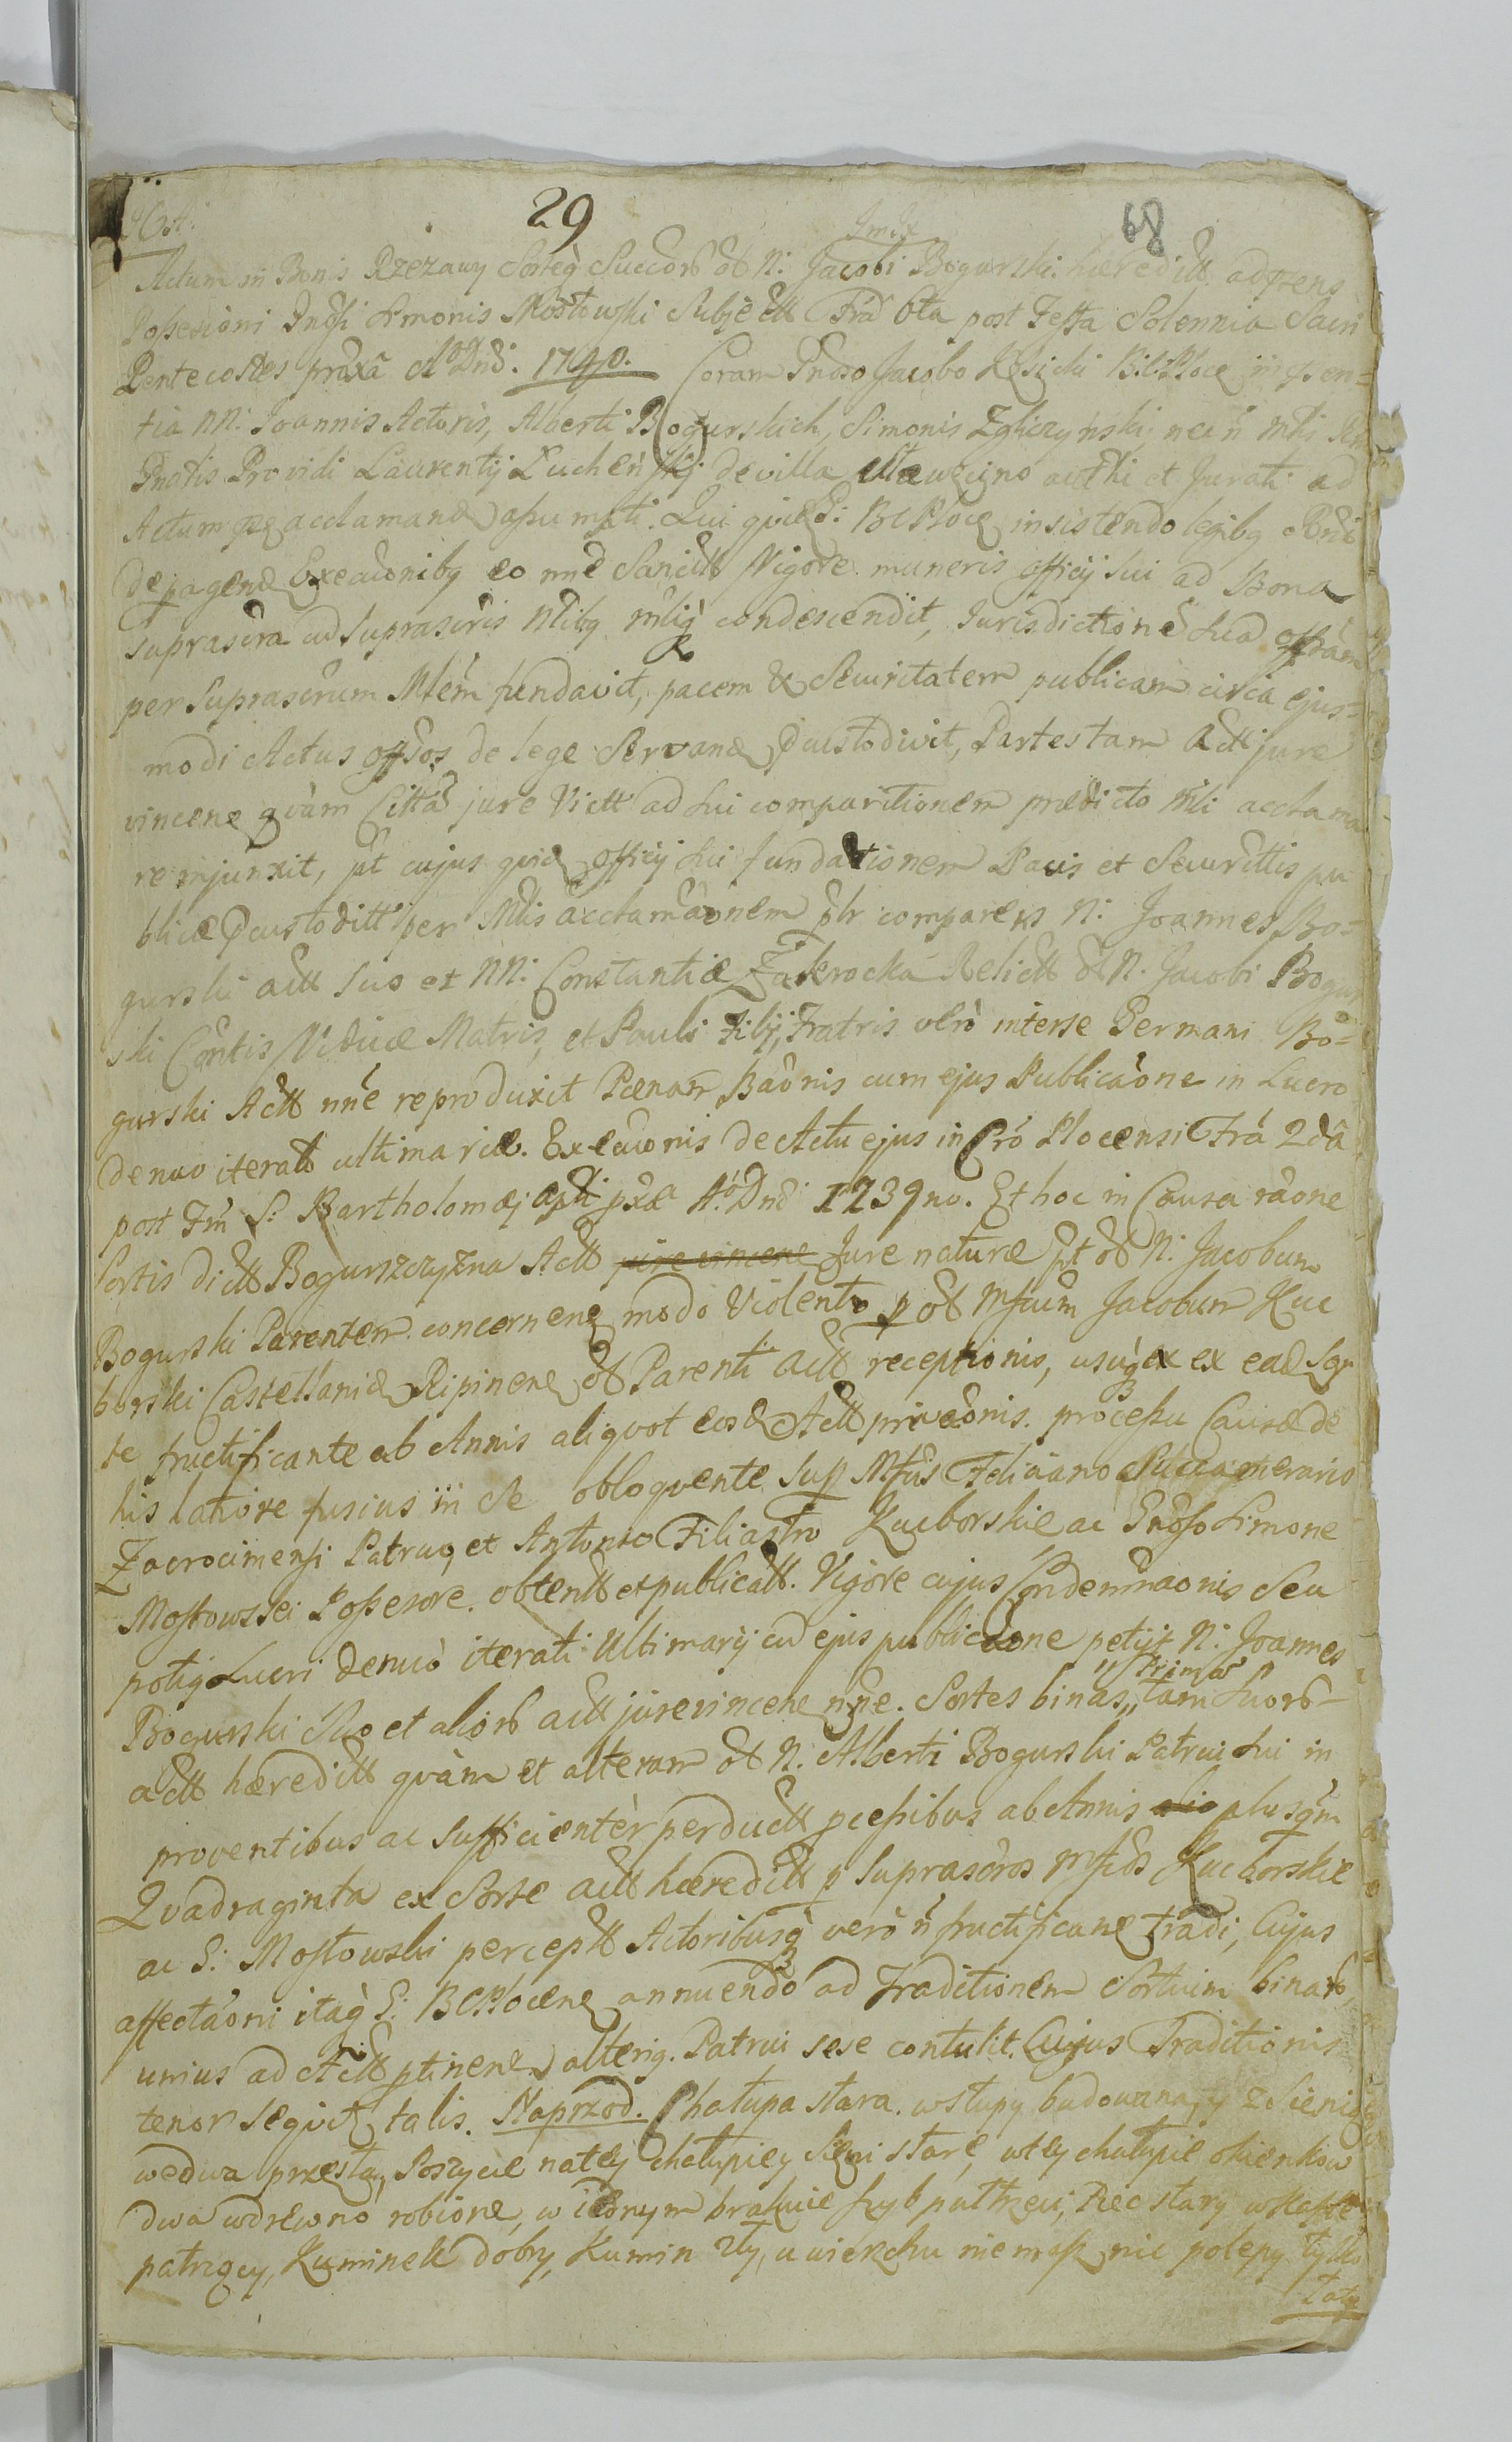 29
68
Actum in Bonis Rzezawy Sorteq Succorb ob N: Jacobi Bogurski hæreditt adprens
Possesioni Gnosi Simonis Mostowski Subjectt Fra 6ta post Festa Solennia Sacri
Pentecostes proxa Ao Dni: 1740. Coram Gnoso Jacobo B:C:Ploce in psen=
tia NN: Joannis Actoris, Alberti Bogurskich, Simonis Zgliczyński nec n Mli
Gnatis Providi Laurentij de villa authi et Jurati ad
Actum acclamand assumpti. Qui quid G: BCPloce insistendo legibq
de pagend Exeaonibq eo nne Sancitt Vigore muneris officij sui ad Bona
suprascra cu suprascris Nlibq mliq condescendit, Jurisdictione sua offsam
per suprascrum Mlem fundavit, pacem & Securitatem publicam circa ejus=
modi Actus offsos de lege Servand custodivit, Partes tam Actt jure
vincene quàm Citta jure Victt ad sui comparitionem prædicto Mli acclama
re injunxit, pt cujus quid officij sui fundationem Pacis et Securittis pu
blicæ custoditt per Mlis acclamaonem plr comparens N: Joannes Bo=
gurski actt suo et NN: Constantiæ Zakrocka Relictt ob N. Jacobi Bogur
ski Contis Viduæ Matris, et Pauli Filij, Fratris vero interse Germani Bo=
gurski Actt nne reproduxit Pœnam Baonis cum ejus Publicaone in Lucro
denuo iteratt ultimariæ. Exeaonis de Actu ejus in Cro Plocensi Fra 2da
post Fm S: Bartholomæj Apli pxa Ao Dni 1739no. Et hoc in Causa raone
Sortis dictt Bogurszczyzna Actt jure vincene Jure naturæ pt ob N: Jacobum
Bogurski Parentem concernene modo violento p ob Mfcum Jacobum Kuc
borski Castellanid Ripinene ob Parenti actt receptionis, usuq ex ead Sor
te fructificante ab Annis aliquot eosd Actt privaonis. processu Causæ de
his latiore fusius in se obloquente sup Mfcis Feliciano Succamerario
Zacrocimensi Patruo, et Antonio Filiastro Kucborskie ac Gnoso Simone
Mostowski Possesore. obtentt et publicatt. Vigore cujus Condemnaonis seu
potiq Lucri denuò iterati Ultimarij cu ejus publicaone petijt N: Joannes
Bogurski suo et aliorb actt jurevincene nne. Sortes binas,, Primo tam suorb
actt hæreditt quàm et alteram ob N. Alberti Bogurski Patrui sui in
proventibus ac sufficientèr perductt pcessibus ab Annis alio plusqm
Quadraginta ex Sorte actt hæreditt p suprascros Mfcos Kucborskie
ac G: Mostowski perceptt Actoribusq verò n fructificane tradi, Cujus
affectaoni itaq G: BCPlocene annuendo ad Traditionem Sortium binarb,
unius ad Actt ptinene alteriq. Patrui sese contulit. Cujus Traditionis
tenor sequit talis. Naprzod. Chałupa stara wsłupy budowana, y zSienią
wedwa przesta, Poszycie natey chałupiey Sieni stare, wtey chałupie okienkow
dwa wdrewno robione, w ktorym brakuie szyb puttrzeci, Piec stary
patrzący, Kuminek dobry, Kumin zły, u wierzchu niemasz nic polepy tylko
Łaty